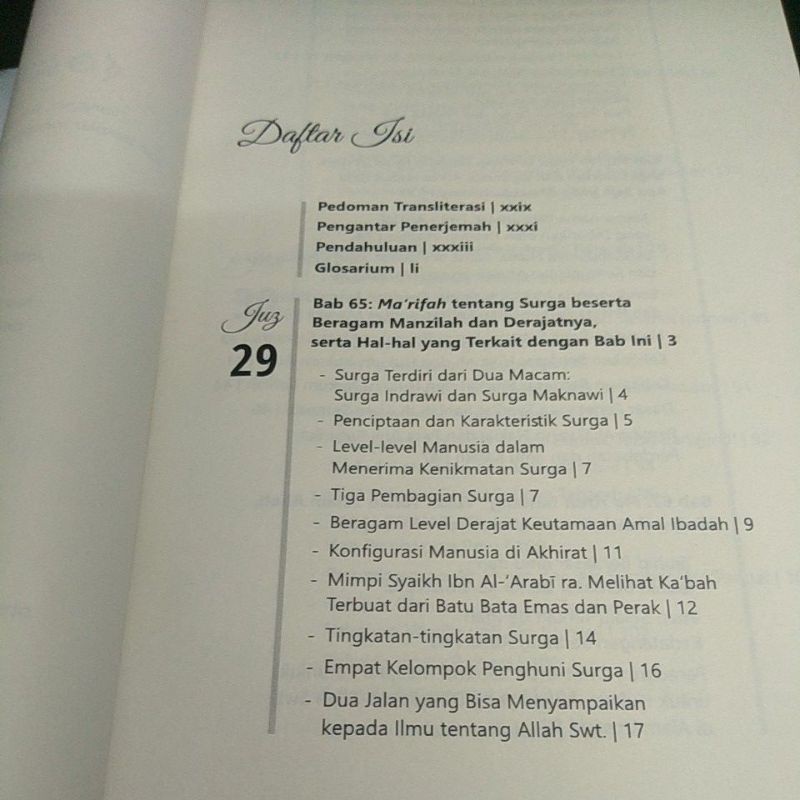 Daftar Isi
Pedoman Transliterasi | xxix
Pengantar Penerjemah | xxxi
Pendahuluan | xxxiii
Glosarium | li
Juz
29
Bab 65: Ma'rifah tentang Surga beserta
Beragam Manzilah dan Derajatnya,
serta Hal-hal yang Terkait dengan Bab Ini | 3
- Surga Terdiri dari Dua Macam:
Surga Indrawi dan Surga Maknawi | 4
- Penciptaan dan Karakteristik Surga | 5
- Level-level Manusia dalam
Menerima Kenikmatan Surga | 7
- Tiga Pembagian Surga | 7
- Beragam Level Derajat Keutamaan Amal Ibadah | 9
- Konfigurasi Manusia di Akhirat | 11
- Mimpi Syaikh Ibn Al-'Arabī ra. Melihat Ka'bah
Terbuat dari Batu Bata Emas dan Perak | 12
- Tingkatan-tingkatan Surga | 14
- Empat Kelompok Penghuni Surga | 16
- Dua Jalan yang Bisa Menyampaikan
kepada Ilmu tentang Allah Swt. | 17